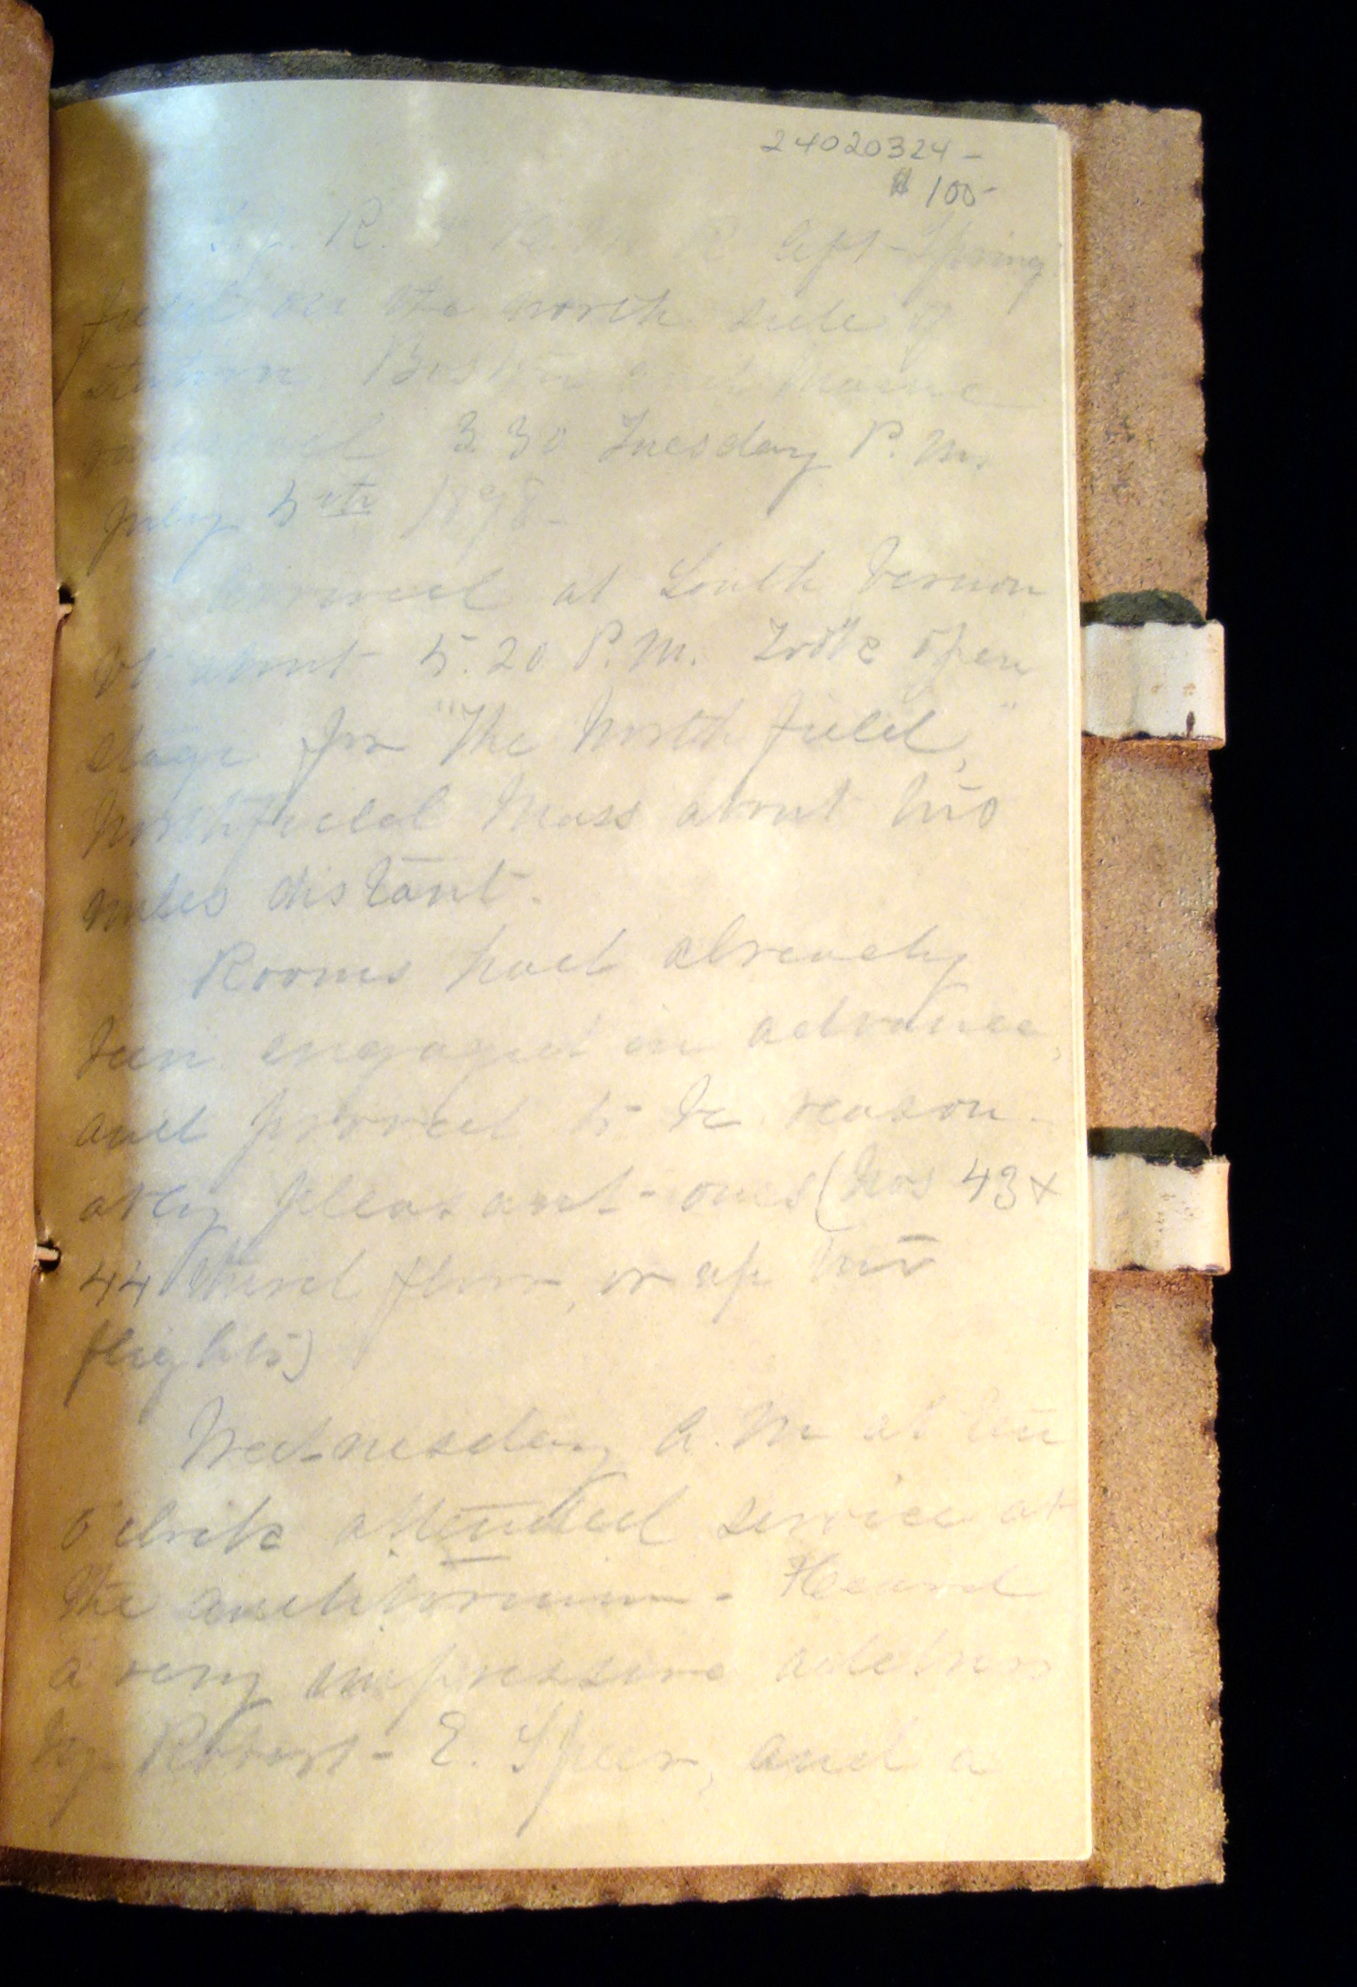 24020324 -
$ 100-
R. left Spring
field on the north side of
station. Boston and Maine
railroad 3 30 Tuesday P. M.
July 5th 1898-
Arrived at South Vernon
at about 5.20 P.M. Took open
stage for "The Northfield,"
Northfield Mass about two
miles distant.
Rooms had already
been engaged in advance,
and proved to be reason-
ably pleasant- ones (Nos 43 +
44 third floor, or up two
flights)
Wednesday A. M at ten
o'clock attended service at
the auditorium - Heard
a very impressive address
by Robert- E. Speer, and a